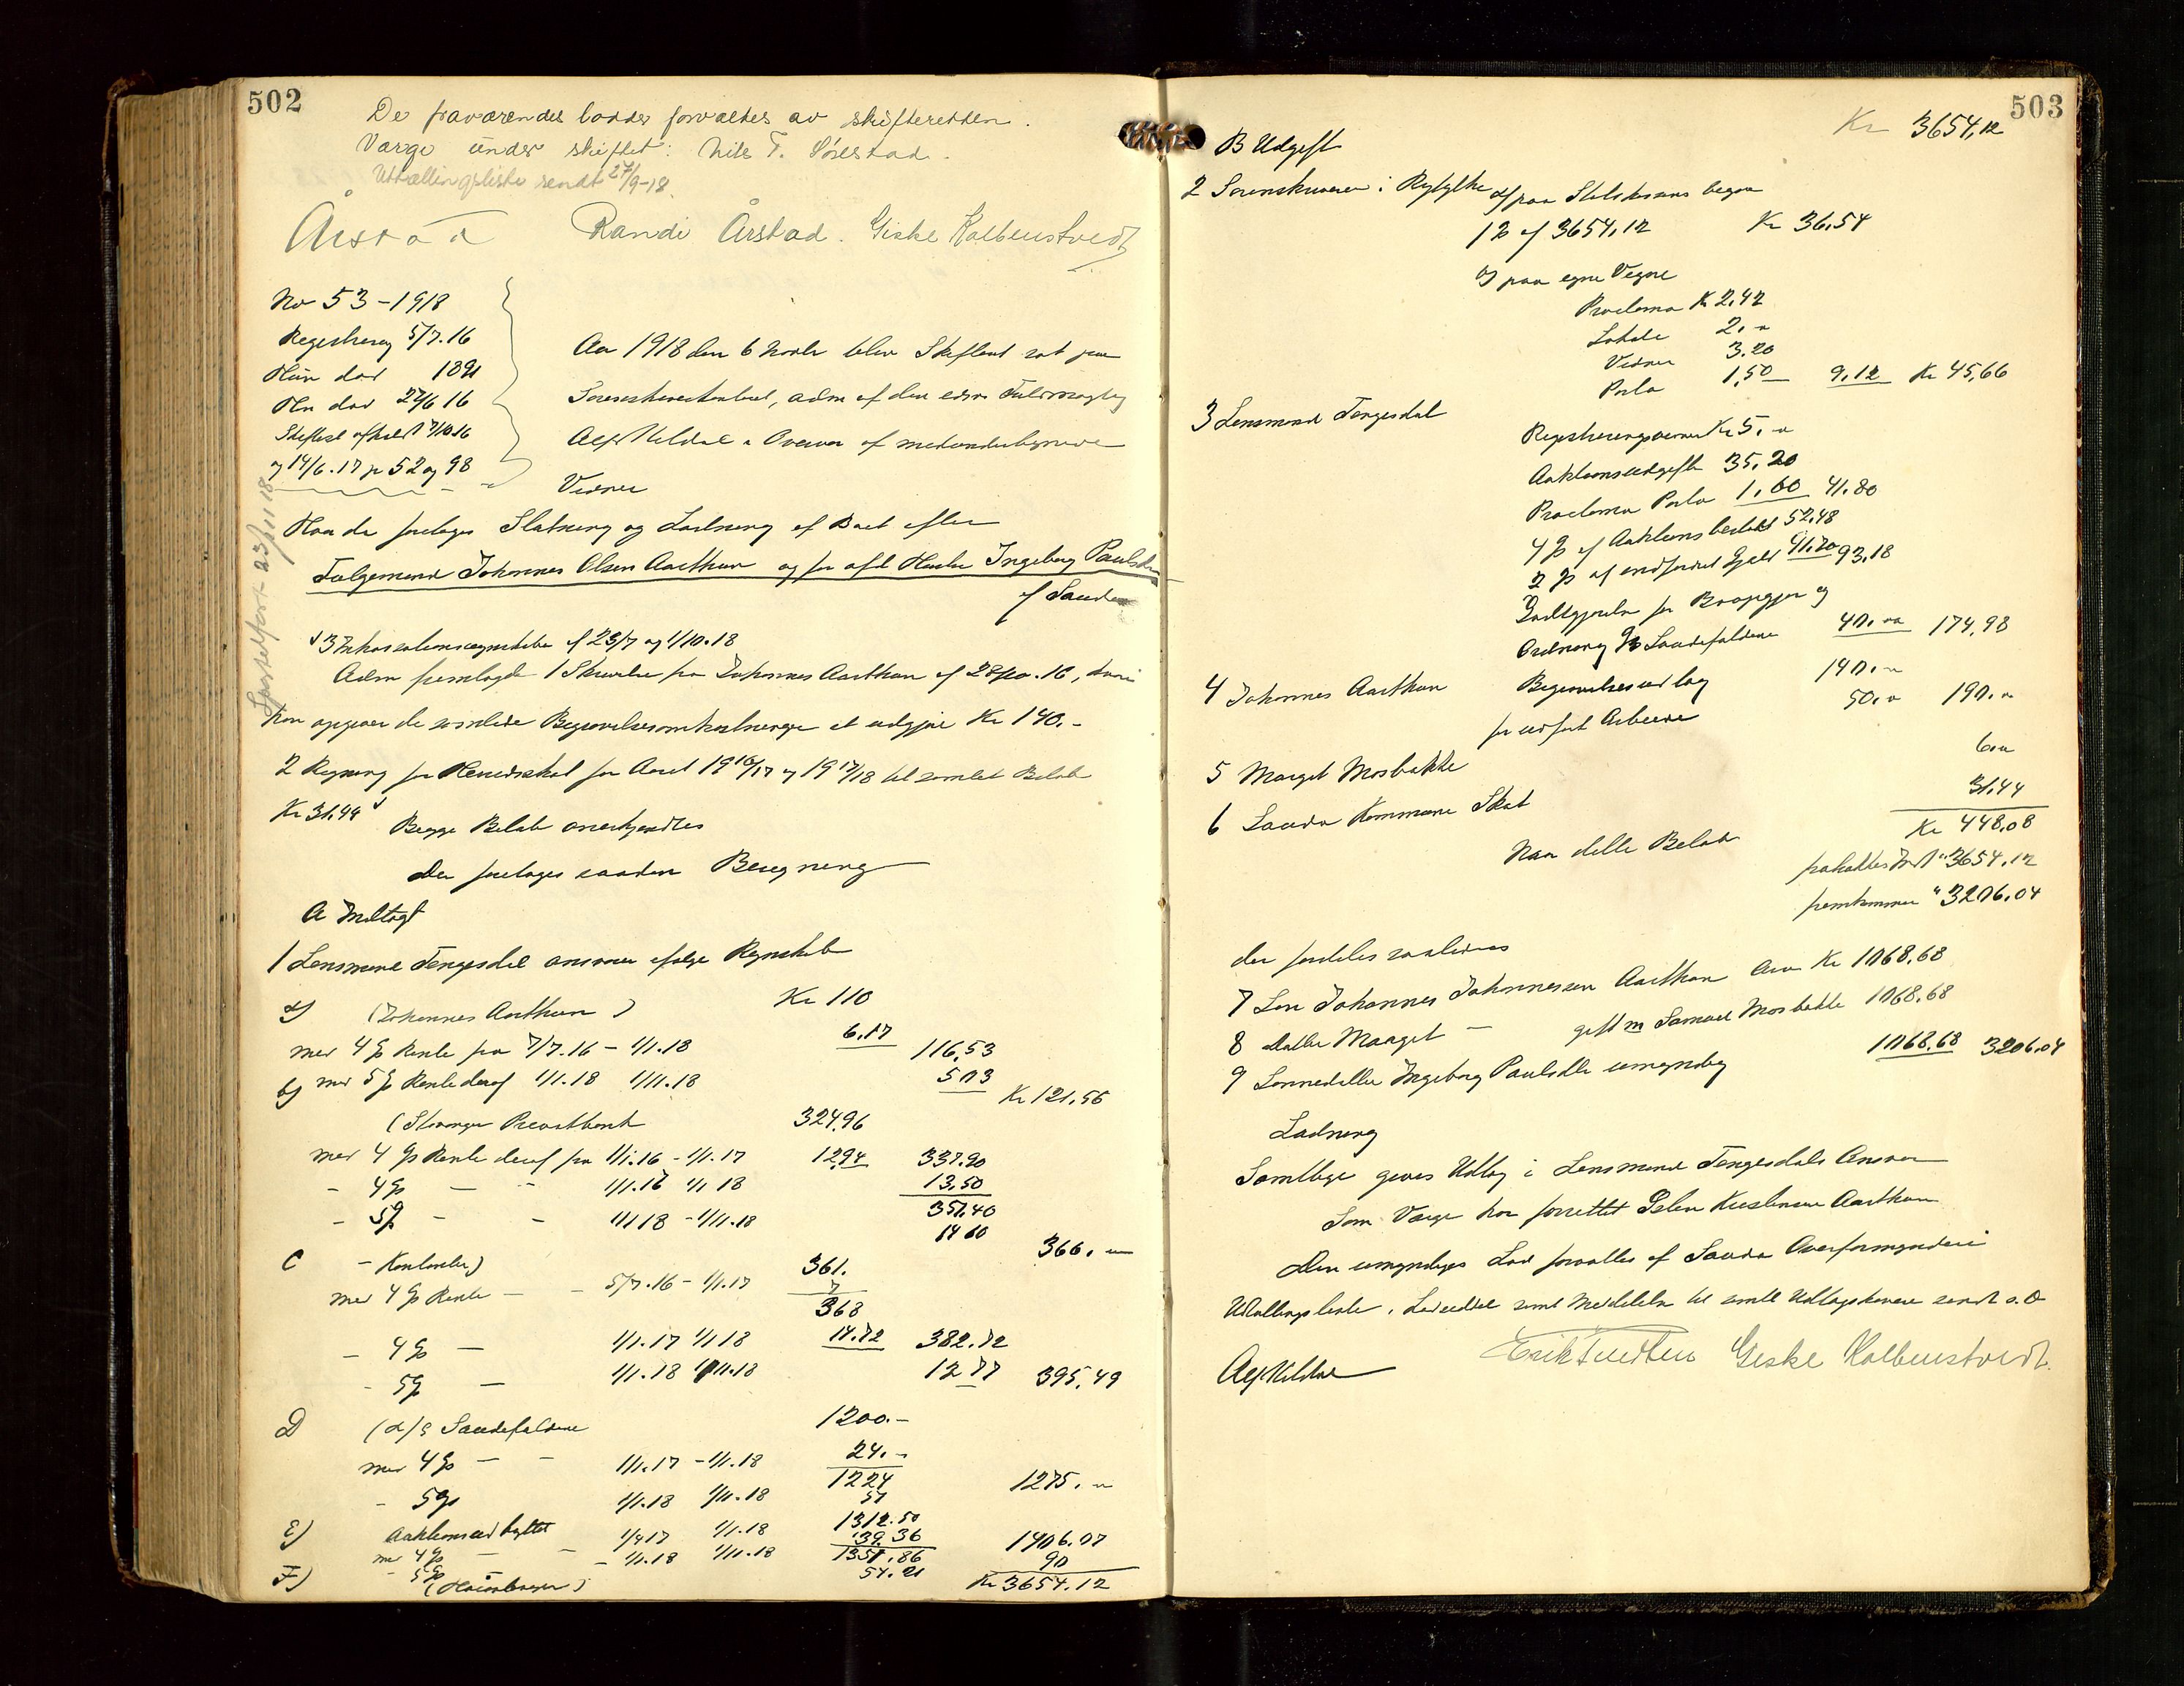 502
De fraværendes lodder forvaltes av skifteretten.
Værge under skiftet: Nils T.
Uttællingsliste sendt 27/9-18.
Årstad Randi Årstad. Giske Kolbenstvedt
No 53-1918
Registrering 5/7.16
Hun død 1891
Han død 27/6 16
Skiftet afholdt 7/10 16
og 14/6.17 p 52 og 98
23/11 18
Aar 1918 den 6 Novbr blev Skifteret sat paa
Sorenskriverkontoret, adm af den edsv. Fuldmægtig
Alf Kildal i Overvær af medunderskrevne
Vidner
Hvor da foretoges Slutning og Lodning af Boet efter
Følgemand Johannes Olsen Aarthun og før afd Hustru Ingeborg Paulsdtr
af Saude
3 af 23/7 og 1/10.18
Adm fremlagde 1 Skrivelse fra Johannes Aarthun af 28/10.16, hvori
han opgiver de samlede Begravelsesomkostninger at udgjøre Kr 140.-
2 Regning for Herredskat for Aaret 1916/17 og 1917/18 til samlet Beløb
Kr 31.44
Begge Beløb anerkjendtes
Der foretoges saadan Beregning
A Indtægt
1 Lensmand Tengesdal ansvarer ifølge Regnskab
a) (Johannes Aarthun) Kr 110
med 4 % Rente fra 7/7.16 - 1/1.18 6.17 116,53
med 5 % Rente deraf 1/1.18 1/11.18 503 Kr 121.56
b) (Stavanger Privatbank 324,96
med 4 % Rente deraf fra 1/1.16 - 1/1.17 12,94 337.90
- 4 % - - 1/1.16 1/1 18 13,50
351.40
- 5 % - - 1/1 18 - 1/11.18 14 60 366. -
C - Kontanter) 361.
med 4 % Rente - - 5/7.16 - 1/1.17 7
368
- 4 % - 1/1.17 1/1 18 14.72 382.72
- 5 % - 1/1.18 1/11.18 12 77 395,49
D (A/S Saudefaldene 1200.-
med 4 % - - 1/1.17 - 1/1.18 24.-
1224
- 5 % 1/1.18 1/11.18 51 1275. -
E) Auktionsudbyttet 1312.50
me 4 % - - 1/4 17 1/1.18 39.36
1351,86
- 5 % - 1/1.18 1/11.18 54.21 1406.07
F) 90
Kr 3654.12
503
Kr 3654,12
B Udgift
2 Sorenskriveren i Ryfylke a) paa Statskassens vegne
1 % af 3654,12 Kr 36,54
b) paa egne Vegne
Proclama Kr 2.42
Lokale 2.-
Vidner 3.20
Porto 1,50 9,12 Kr 45,66
3 Lensmand Tengesdal
Registreringsvidner Kr 5.-
Auktionsudgifter 35,20
Proclama Porto 1.60 41.80
4 % af Auktionsbeløbet 52,48
2 % af indfordret Gjeld 41.20 93,18
Godtgjørelse for Boopgjør og
Ordning Saudefaldene 40.00 174,98
4 Johannes Aarthun Begravelsesudlæg 140.-
for udført Arbeide 50.- 190.-
5 Marget Mosbakke 6.-
6 Sauda Kommune Skat 31.44
Kr 448.08
Naar dette Beløb
3654.12
fremkommer " 3206,04
der fordeles saaledes
7 Søn Johannes Johannessen Aarthun Arv Kr 1068.68
8 datter Marget - gift m Samuel Mosbakke 1068.68
9 Sønnedatter Ingeborg Paulsdtr umyndig 1068.68 3206.04
Lodning
Samtlige gives Udlæg i Lensmand Tengesdals Ansvar
Som Værge har forrettet Peder Aarthun
Den umyndiges Lod forvaltes af Sauda Overformynderi
Udtællingsliste, Lodseddel samt Meddelelse til samtl Udlægshavere sendt s.D
Alf Kildal Giske Kolbenstvedt.